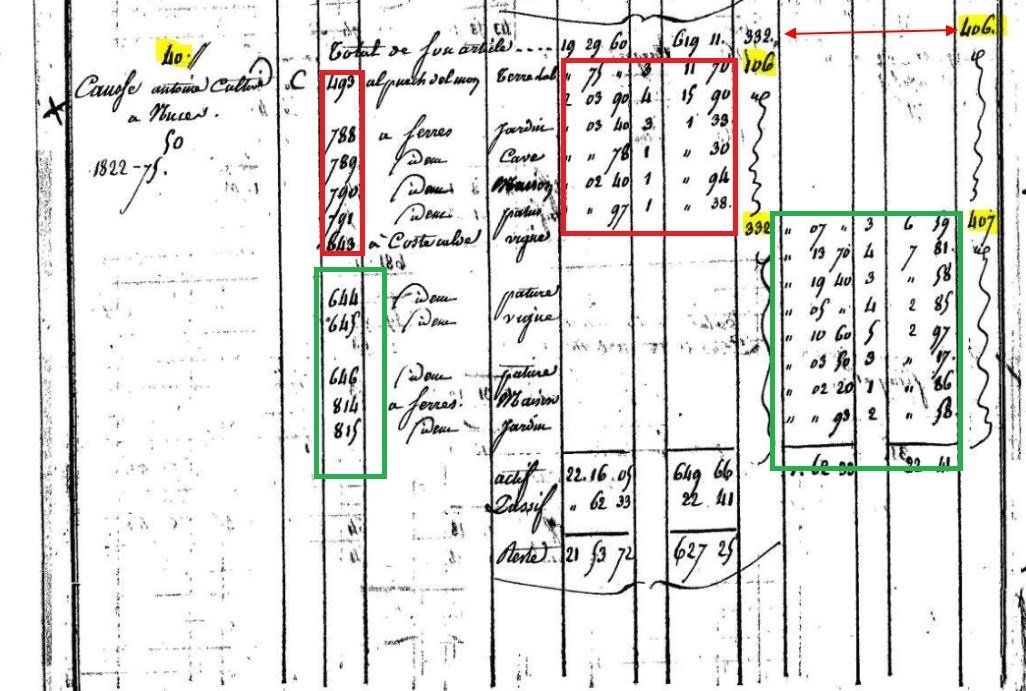 Total de son article.... 19 29 60 619 11 332. 406.
40.//
Causse antoine Cultiv C 493 al puech delmon Terre lab " 75 " 3 11 70 106
2 03 90 4 15 90
a Nuces.
788 a ferres Jardin " 03 40 3 1 33
50
789 idem Cave " " 78 1 " 30
1822-75.
790 idem Maison " 02 40 1 " 94
791 idem patus " " 97 1 " 38.
643 à Coste calde vigne 332 " 07 " 3 6 59 407
" 13 70 4 7 81
" 19 40 3 " 58
644 idem pature " 05 " 4 2 85
645 idem vigne " 10 60 5 2 97
646 idem pature " 03 50 3 " 17
814 a ferres. Maison " 02 20 1 " 86
815 idem Jardin " " 93 2 " 58
actif 22.16.05 649 66 " 62 33 22 41
Passif " 62 33 22 41
Reste 21 53 72 627 25